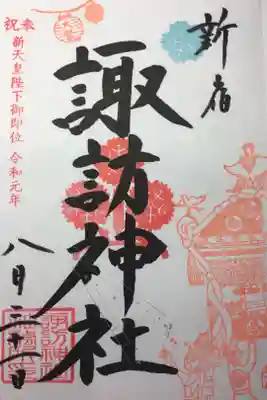 新宿
諏訪神社
奉祝
新天皇陛下御即位 令和元年
八月二十一日